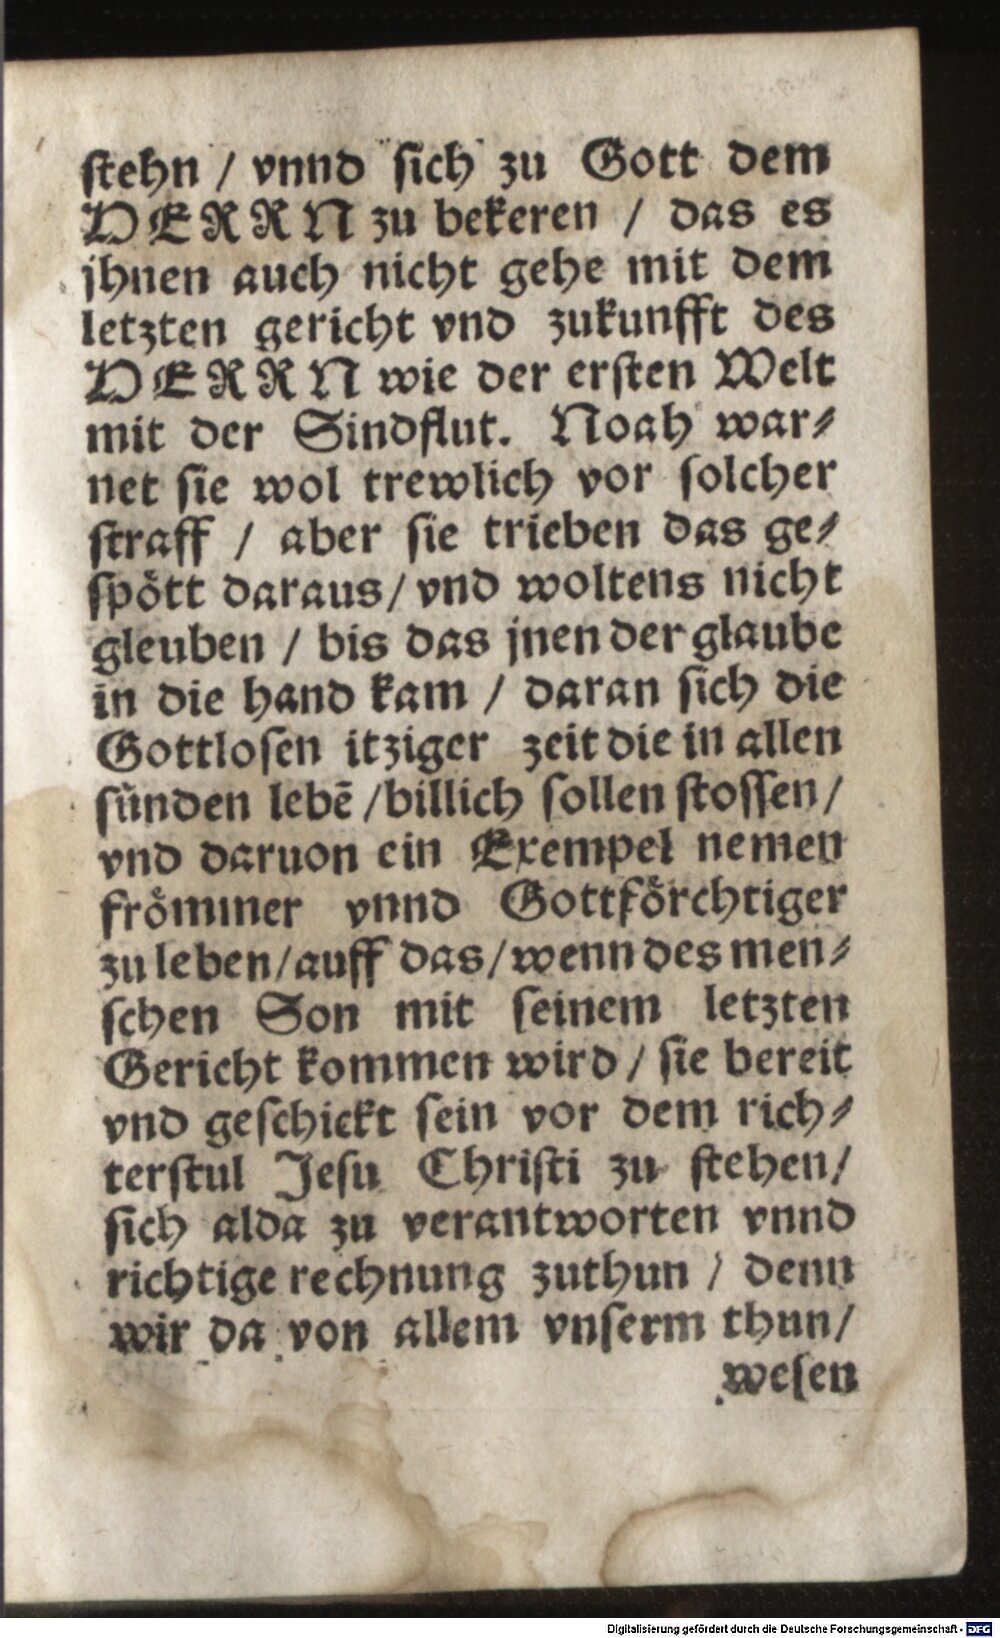 stehn / vnnd sich zu Gott dem
HERRN zu bekeren / das es
jhnen auch nicht gehe mit dem
letzten gericht vnd zukunfft des
HERRN wie der ersten Welt
mit der Sindflut. Noah war⸗
net sie wol trewlich vor solcher
straff / aber sie trieben das ge⸗
spött daraus / vnd woltens nicht
gleuben / bis das jnen der glaube
in die hand kam / daran sich die
Gottlosen itziger zeit die in allen
sünden lebē / billich sollen stossen /
vnd daruon ein Exempel nemen
frömmer vnnd Gottförchtiger
zu leben / auff das / wenn des men⸗
schen Son mit seinem letzten
Gericht kommen wird / sie bereit
vnd geschickt sein vor dem rich⸗
terstul Jesu Christi zu stehen /
sich alda zu verantworten vnnd
richtige rechnung zuthun / denn
wir da von allem vnserm thun /
wesen
Digitalisierung gefördert durch die Deutsche Forschungsgemeinschaft - DFG